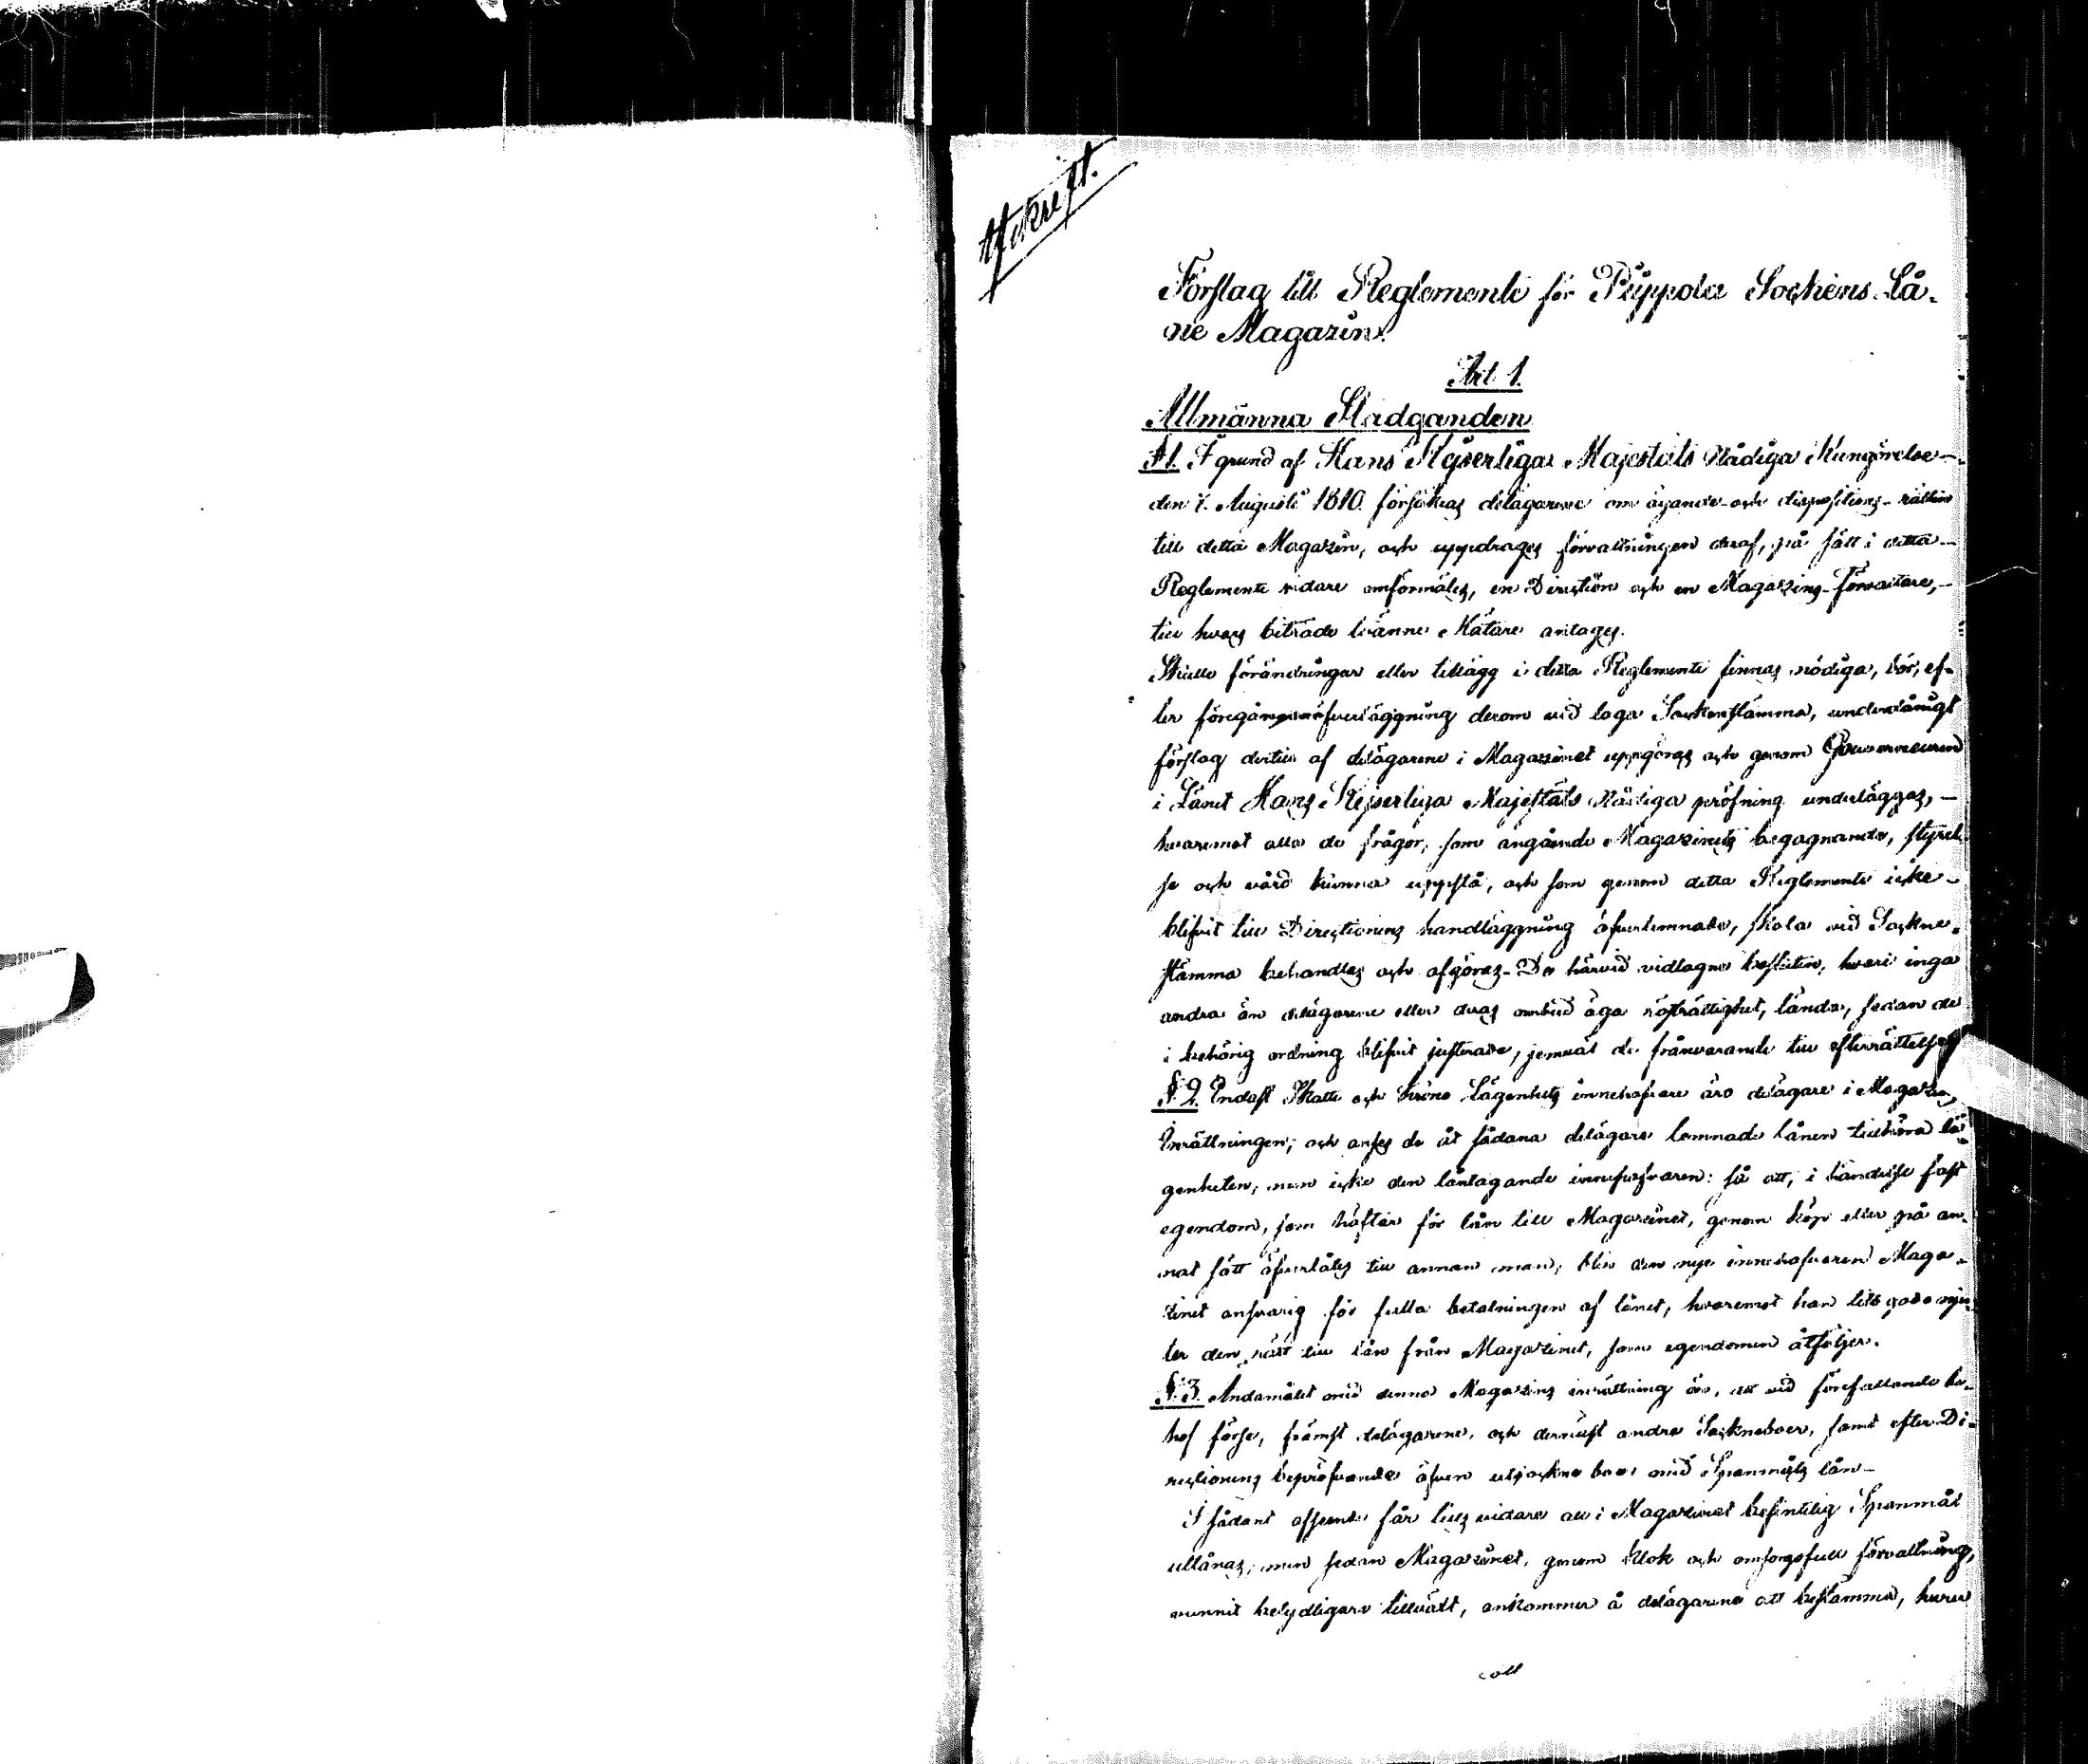 Afskrift.
Förslag till Reglemente för Pyppola Sockens Lå-
ne Magazin.
Art 1.
Allmänna Stadganden
§ 1. I grund af Hans Kejserliga Majestäts Nådiga Kungörelse
den 7. Augusti 1810. försäkras delägarene om ägande- och dispositions-rätten
till detta Magazin, och uppdrages förvaltningen deraf, på sätt i detta
Reglemente vidare omförmäles, en Direction och en Magazins-Förvaltare,
till hvars biträde tvänne Mätare antages.
Skulle förändringar eller tillägg i detta Reglemente finnas nödiga, bör, ef-
ter föregången öfverläggning derom vid laga Sockenstämma, underdånigt
förslag dertill af delägarene i Magazinet uppgöras och genom Gouverneuren
i Länet Hans Kejserliga Majestäts Nådiga pröfning underläggas,
hvaremot alla de frågor, som angående Magazinets begagnande, styrel-
se och vård kunna uppstå, och som genom detta Reglemente icke
blifvit till Directionens handläggning öfverlemnade, skola vid Sockne-
stämma behandlas och afgöras. De härvid vidtagne besluten, hvari inga
andra än delägarene eller deras ombud äga rösträttighet, lända, sedan de
i behörig ordning blifvit justerade, jemväl de frånvarande till efterrättelse.
§ 2. Endast Skatte och Krono Lägenhets innehafvare äro delägare i Magazins
Inrättningen; och anses de åt sådana delägare lemnade lånen tillhöra lä-
genheten, men icke den låntagande innehafvaren: så att, i händelse fast
egendom, som häftar för lån till Magazinet, genom köp eller på an-
nat sätt öfverlåtes till annan man, blir den nye innehafvaren Maga-
zinet ansvarig för fulla betalningen af lånet, hvaremot han till godo nju-
ter den rätt till lån från Magazinet, som egendomen åtföljer.
§ 3. Ändamålet med denna Magazins inrättning är, att vid förefallande be-
hof förse, främst delägarene, och dernäst andra Sockneboer, samt efter Di-
rectionens bepröfvande äfven utsockne boer med Spannmåls lån
I sådant afseende får tills vidare all i Magazinet befintelig Spannmål
utlånas; men sedan Magazinet, genom klok och omsorgsfull förvaltning,
vunnit betydligare tillväxt, ankommer å delägarene att bestämma, huru
coll